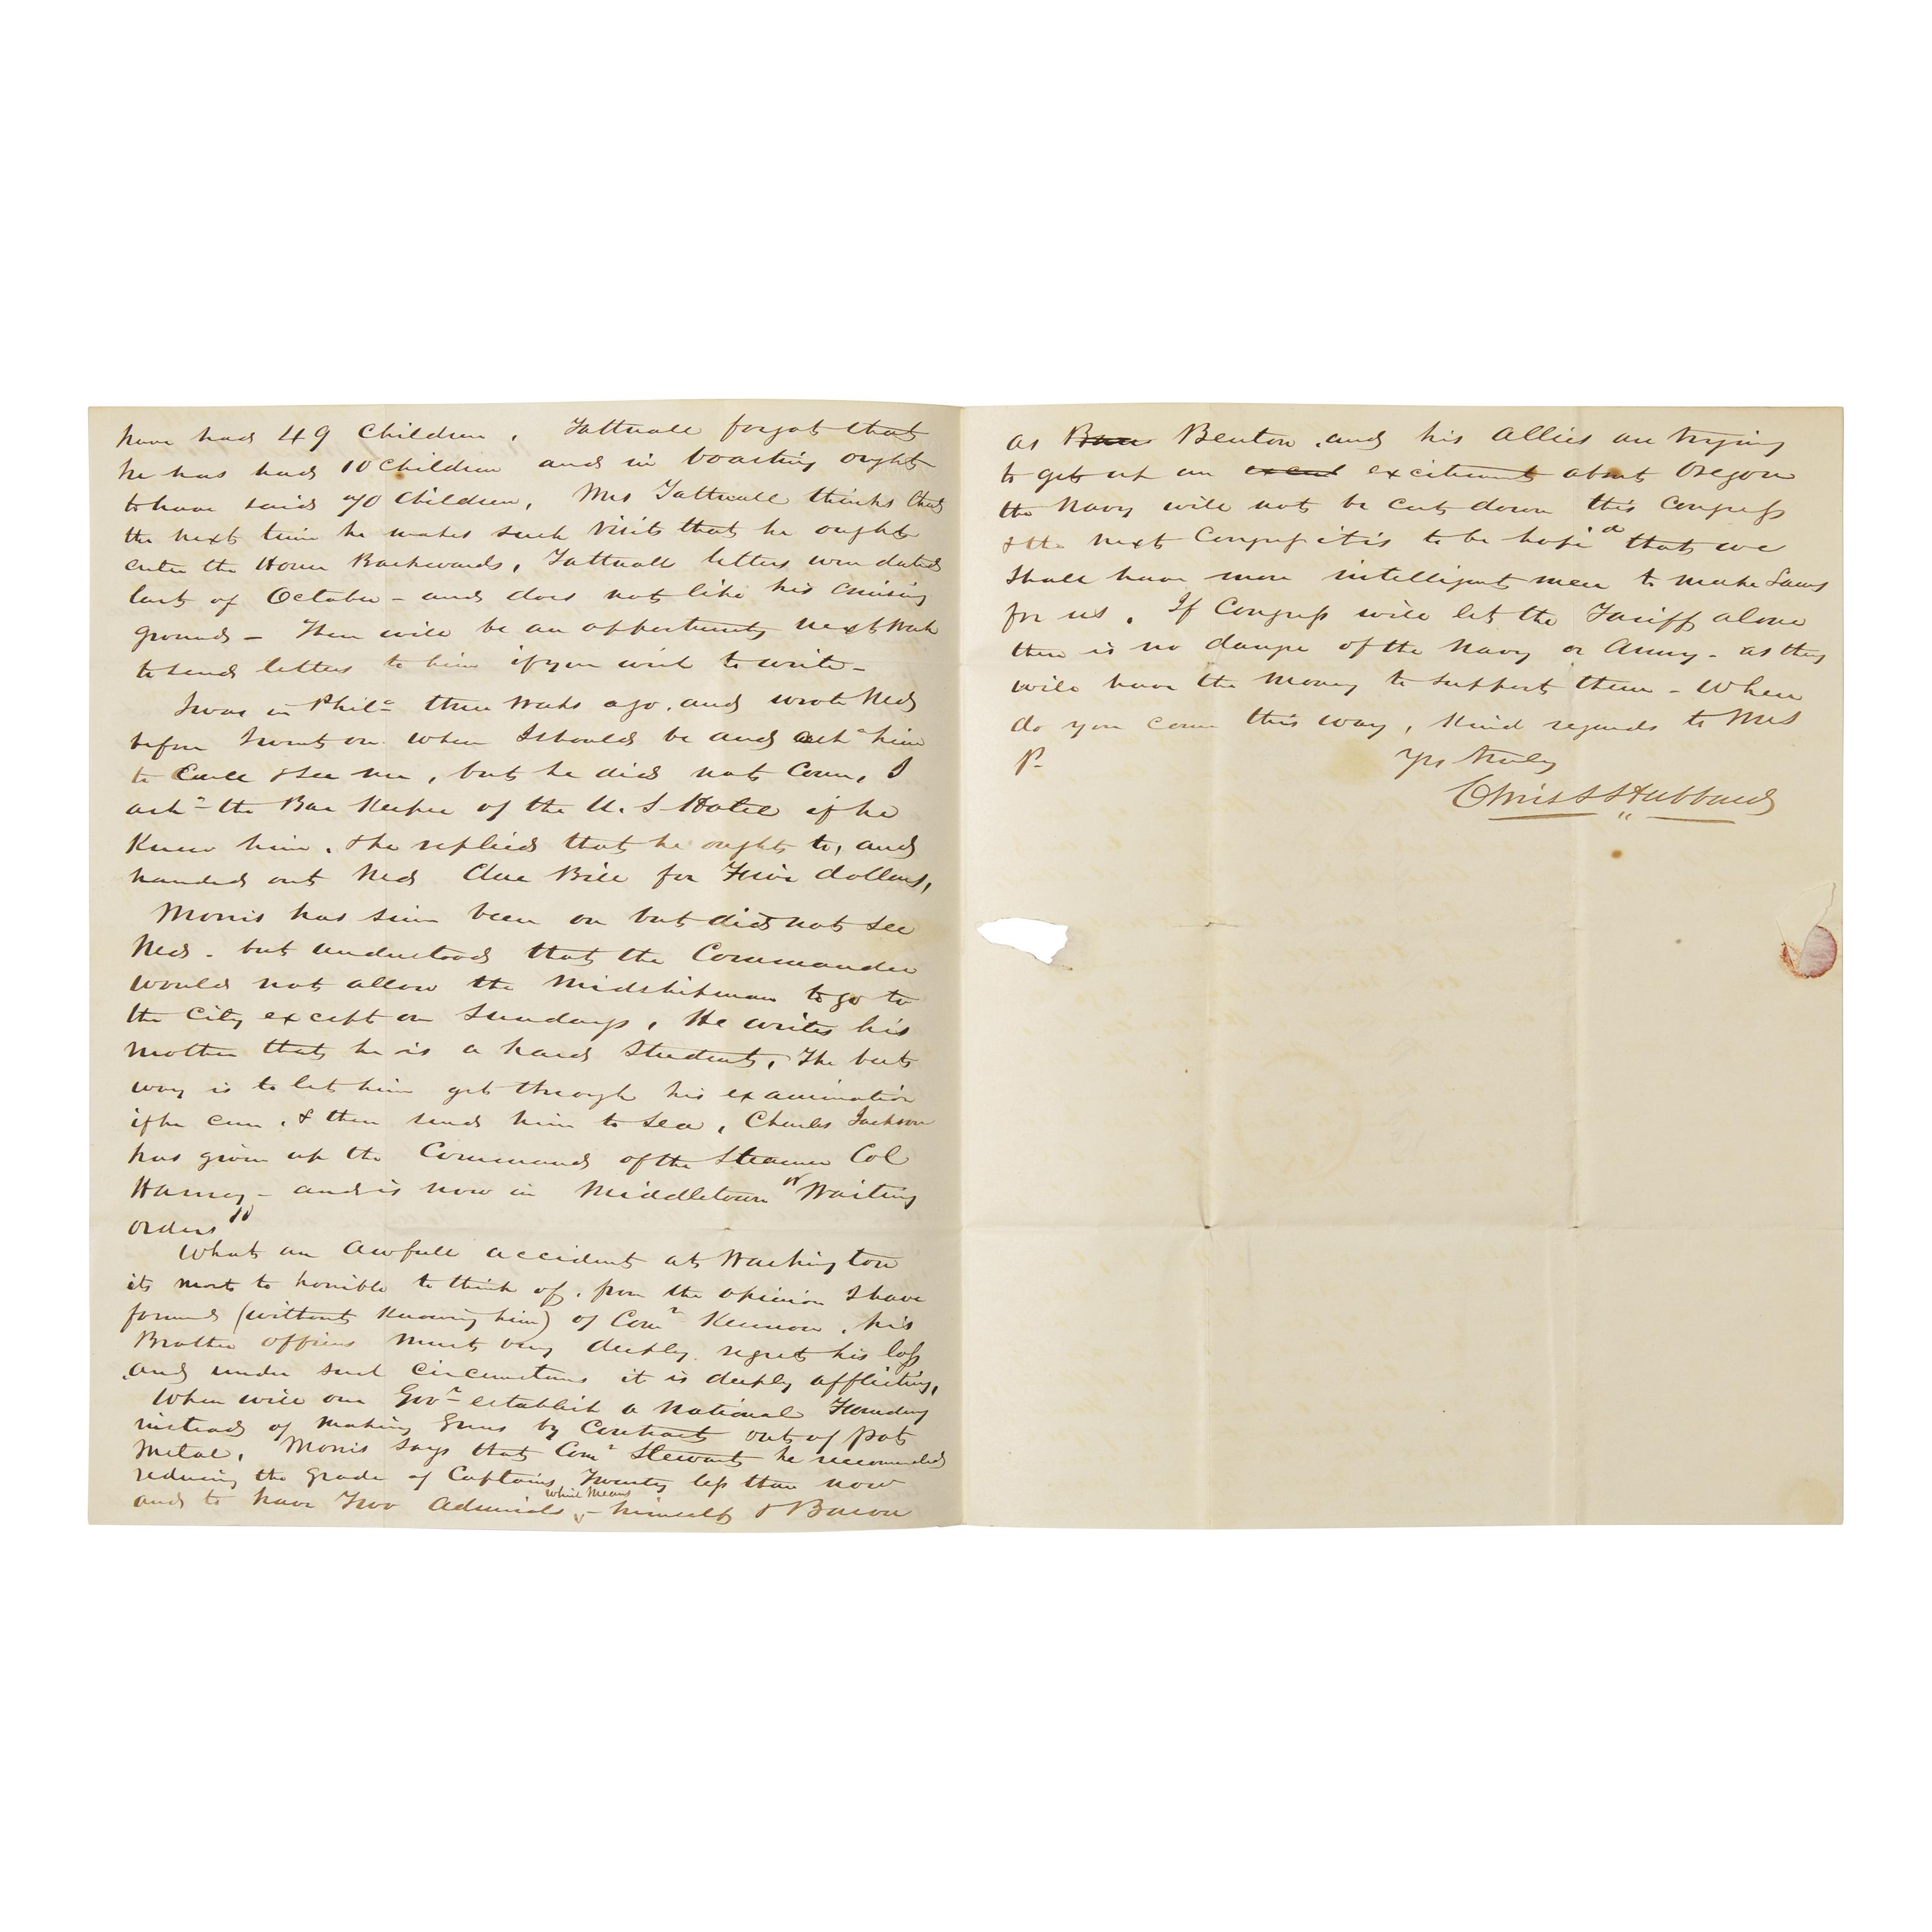 have had 49 Children, Tattnall forgot that
he has had 10 Children and in boasting ought
to have said 70 Children, Mrs Tattnall thinks that
the next time he makes such visits that he ought
enter the House Backwards, Tattnall letters were dated
last of October - and does not like his cruising
grounds - There will be an opportunity next Week
to send letters to him if you wish to write -
I was in Phila three weeks ago, and wrote Ned
before I went on when I should be and ask'd him
to Call & see me, but he did not Come, I
ask'd the Bar Keeper of the U. S Hotel if he
knew him, & he replied that he ought to, and
handed out Neds due Bill for Five dollars,
Morris has since been on but did not see
Ned - but understood that the Commander
would not allow the Midshipman to go to
the City except on Sundays, He writes his
Mother that he is a hard Student, The best
way is to let him get through his examination
if he can, & then send him to Sea, Charles Jackson
has given up the Command of the Steamer Col
Harney - and is now in Middletown "Waiting
orders"
What an awfull accident at Washington
its most to horrible to think of, from the opinion I have
formed (without knowing him) of Comr Kennon, his
Brother officers must very deeply regret his loss
and under such circumstances it is deeply afflicting,
When will our Govt establish a National Foundry
instead of making Guns by Contract out of pot
Metal, Morris says that Comr Stewart he recommended
reducing the grade of Captains Twenty less than now
and to have Two Admirals which means - himself & Barron
as Benton, and his Allies are trying
to get up an excitement about Oregon
the Navy will not be cut down this Congress
& the next Congress it is to be hope'd that we
Shall have more intelligent men to make Laws
for us. If Congress will let the Tariff alone
there is no danger of the Navy or Army - as they
will have the money to support them - When
do you come this way, Kind regards to Mrs
P-
Yrs truly
Chris S Hubbard